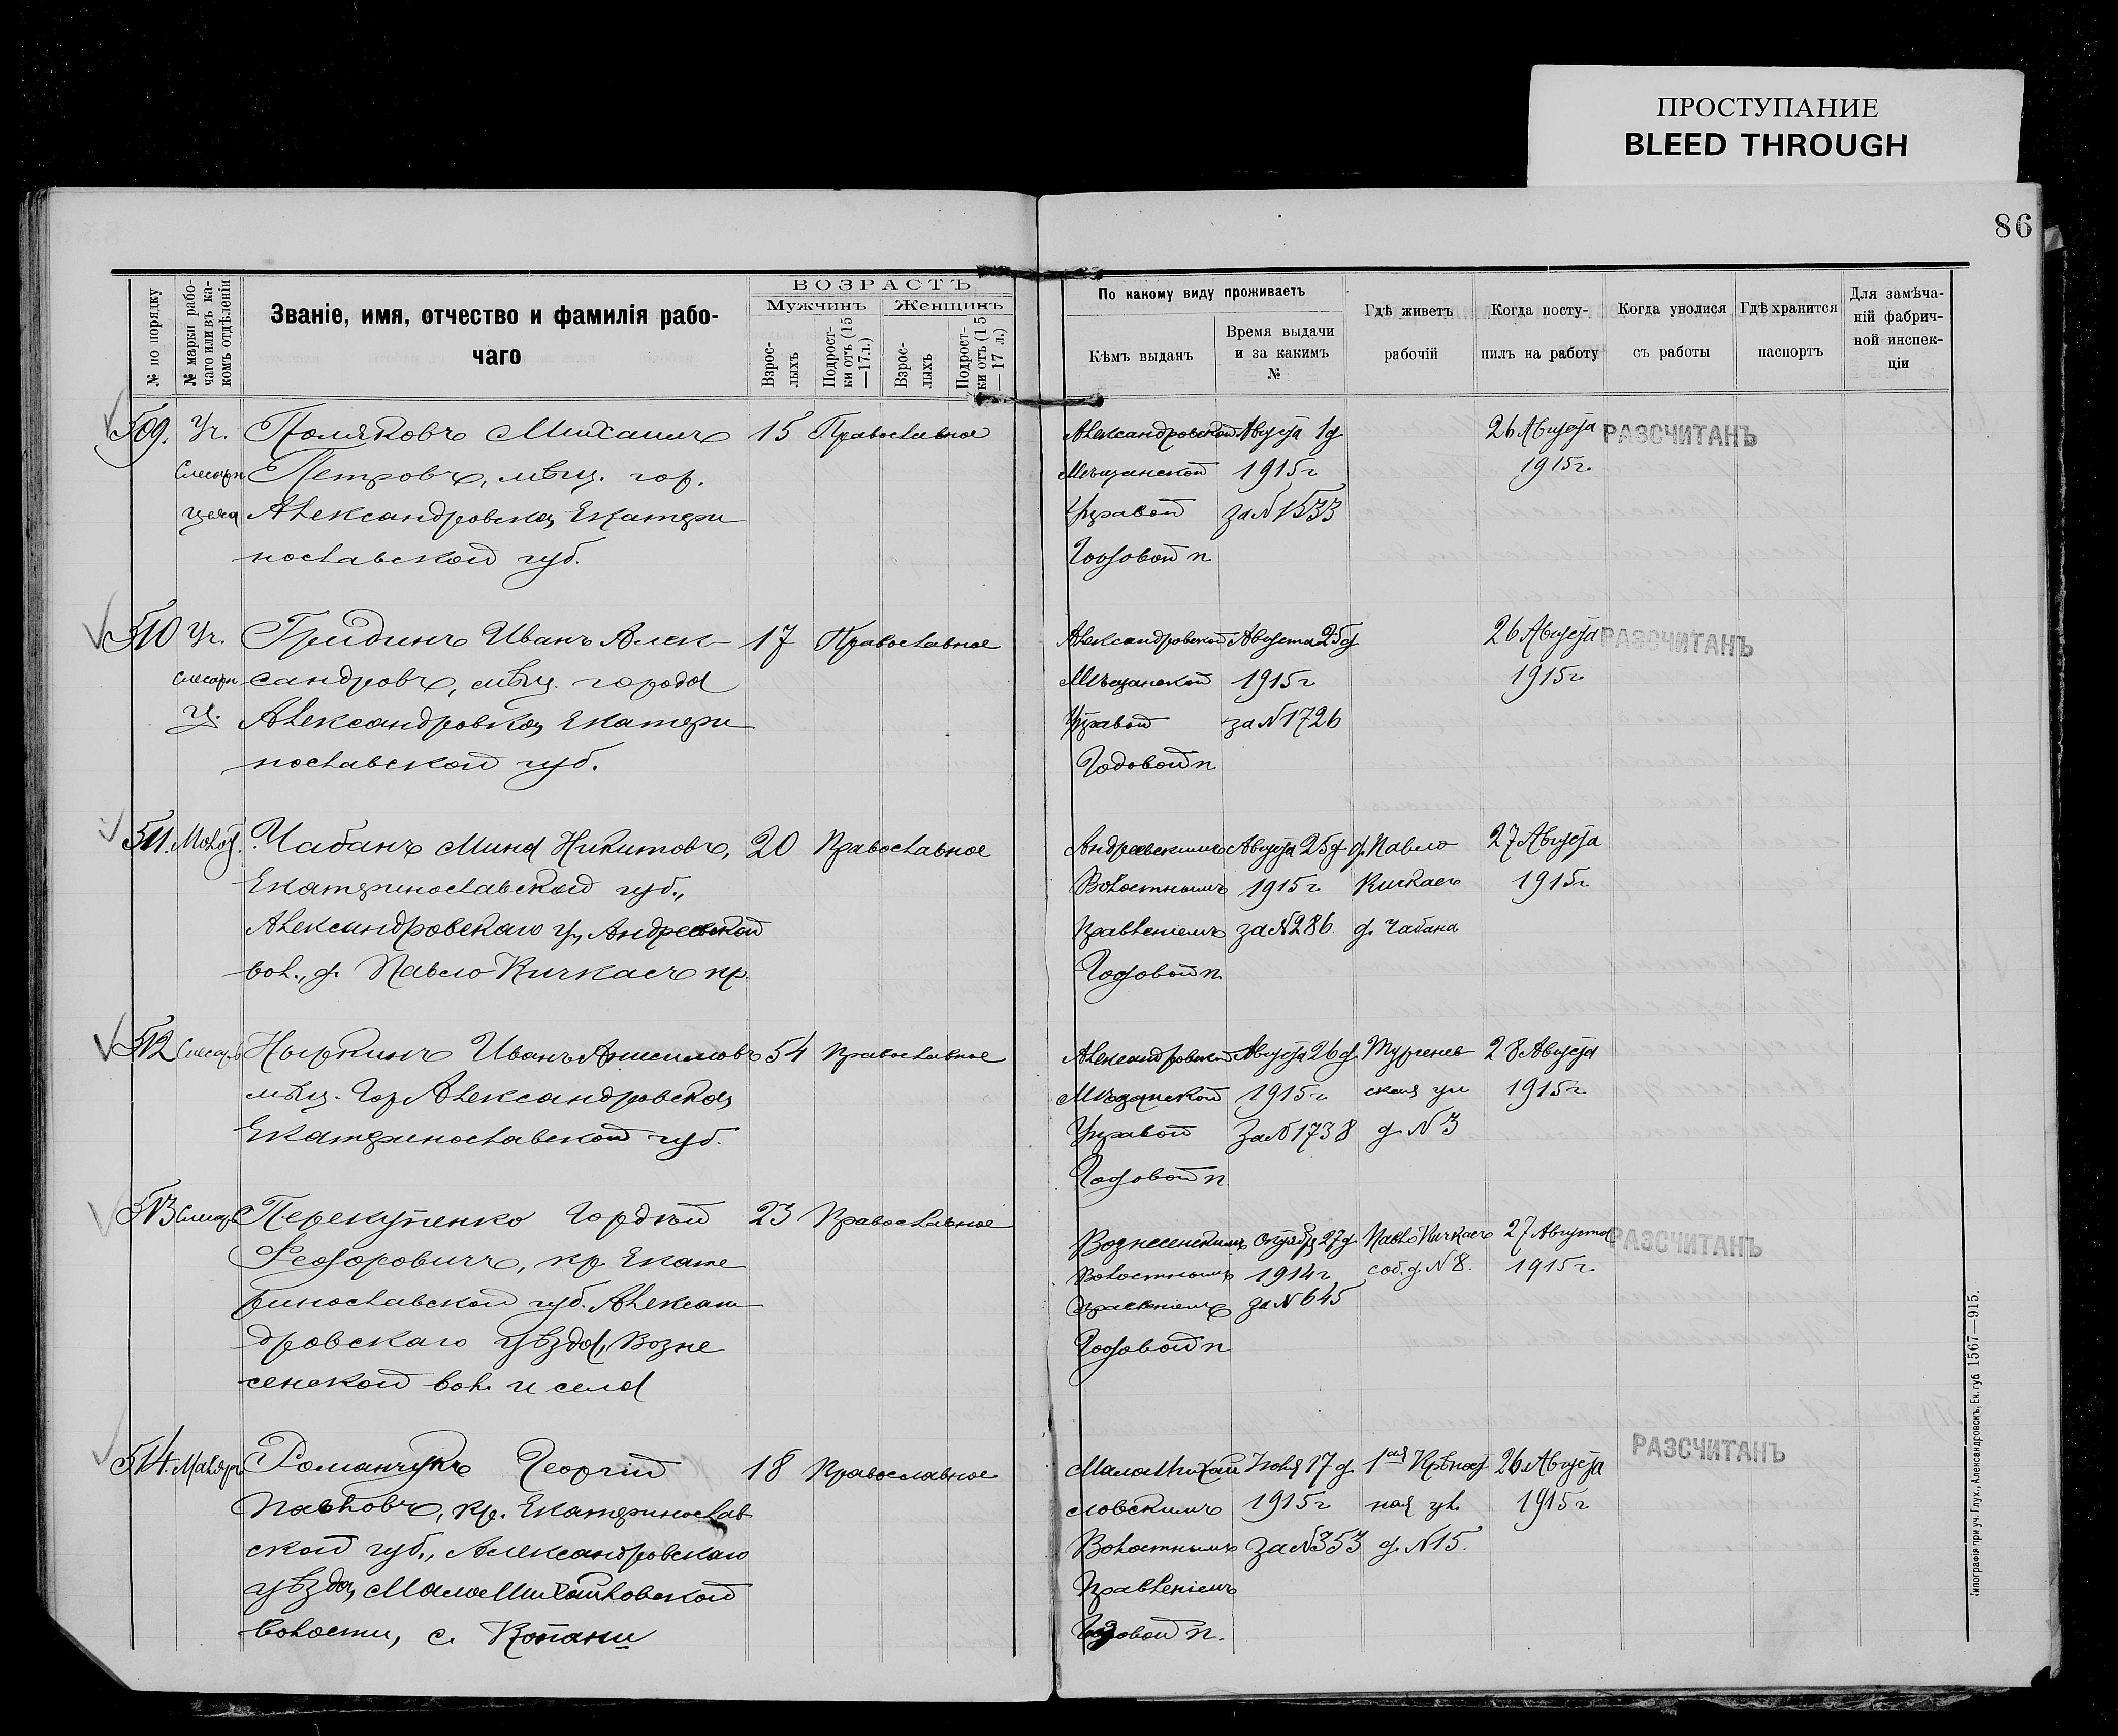 ПРОСТУПАНИЕ
BLEED THROUGH
86
№ по порядку
№ марки рабо-
чаго или въ ка-
комъ отдѣленіи
Званіе, имя, отчество и фамилія рабо-
чаго
ВОЗРАСТЪ
Мужчинъ
Женщинъ
Взрос-
лыхъ
Подрост-
ки отъ (15
—17 л.)
Взрос-
лыхъ
Подрост-
ки отъ (15
—17 л.)
По какому виду проживаетъ
Кѣмъ выданъ
Время выдачи
и за какимъ
№
Гдѣ живетъ
рабочій
Когда посту-
пилъ на работу
Когда уволися
съ работы
Гдѣ хранится
паспортъ
Для замѣча-
ній фабрич-
ной инспек-
ціи
509. Уч. Поляковъ Михаилъ 15 Православное
Слесарн Петровъ, мѣщ. гор.
цеха Александровска, Екатери
нославской губ.
Александровской Августа 1 д РАЗСЧИТАНЪ 26 Августа
Мѣщанской 1915 г 1915 г.
Управой за № 1533
Годовой п
510 Уч. Гридинъ Иванъ Алек- 17 Православное
Слесарн сандровъ, мѣщ. города
ц. Александровска, Екатери
нославской губ.
Александровской Августа 25 д 26 Августа РАЗСЧИТАНЪ
Мѣщанской 1915 г 1915 г
Управой за № 1726
Годовой п
511. Молот. Чабанъ Мина Никитовъ, 20 Православное
Екатеринославской губ.,
Александровскаго у, Андреевской
вол., д. Павло Кичкасъ кр.
Андреевскимъ Августа 25 д д. Павло 27 Августа
Волостнымъ 1915 г Кичкасъ 1915 г
Правленіемъ за № 286. д. Чабана
Годовой п
512 Слесарь Ныркинъ Иванъ Анисимовъ 54 Православное
мѣщ. гор Александровска,
Екатеринославской губ.
Александровской Августа 26 д. Тургенев 28 Августа
Мѣщанской 1915 г ская ул 1915 г.
Управой За № 1738 д. № 3
Годовой п
513 Слесарь Перекупенко Гордѣй 23 Православное
Федоровичъ, кр Екате
ринославской губ. Алексан
дровскаго уѣзда, Возне
сенской вол. и села
Вознесенскимъ 27 д Павло Кичкасъ 27 Августа РАЗСЧИТАНЪ
Волостнымъ 1914 г соб. д. № 8. 1915 г.
Правленіемъ за № 645
Годовой п
514. Маляръ Романчукъ Георгій 18 Православное
Павловъ, кр. Екатеринослав
ской губ., Александровскаго
уѣзда, МалоМихайловской
волости, с. Копани
МалоМихай Іюля 17 д. 1ая Крѣпост 26 Августа РАЗСЧИТАНЪ
ловскимъ 1915 г ная ул. 1915 г
Волостнымъ за № 353 д. № 15.
Правленіемъ
Годовой п.
Типографія при уч. Глух., Александровскъ, Ек. губ. 1567—915.